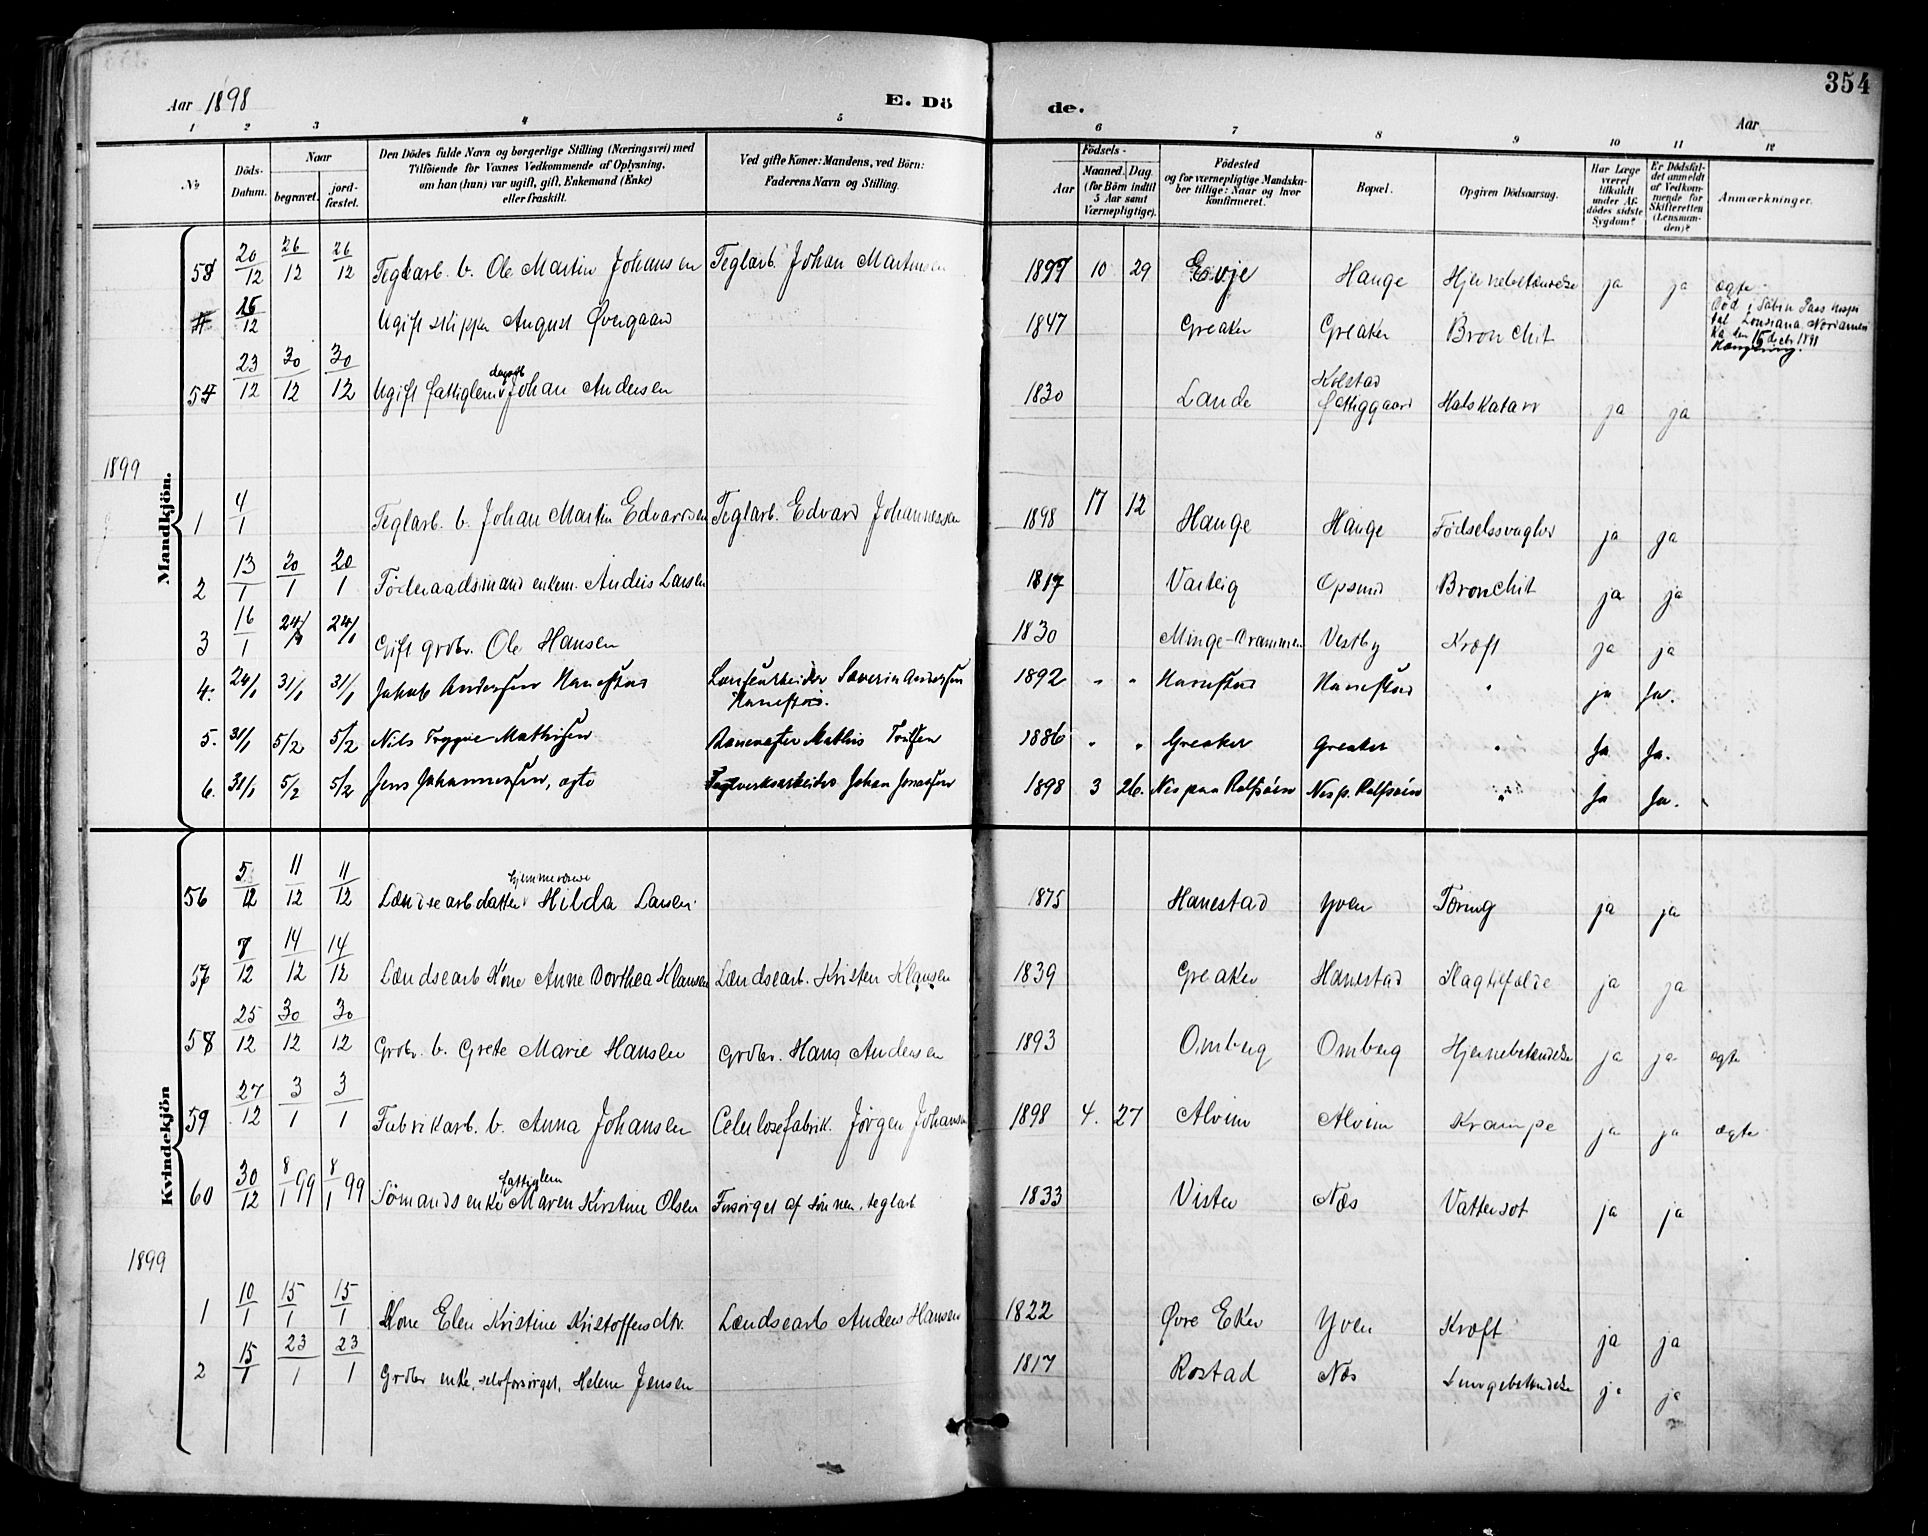 354
Aar 1898
E. Döde.
Aar
1 2 3 4 5 6 7 8 9 10 11 12
No
Döds-Datum.
Naar
begravet.
jord-fæstet.
Den Dödes fulde Navn og borgerlige Stilling (Næringsvei) med
Tilföiende for Voxnes Vedkommende af Oplysning,
om han (hun) var ugift, gift, Enkemand (Enke)
eller fraskilt.
Ved gifte Koner: Mandens, ved Börn:
Faderens Navn og Stilling.
Födsels-
Aar
Maaned. Dag.
(for Börn indtil
5 Aar samt
Værnepligtige).
Födested
og for værnepligtige Mandska-
ber tillige: Naar og hvor
Konfirmeret.
Bopæl.
Opgiven Dödsaarsag.
Har Læge
været
tilkaldt
under Af-
dödes sidste
Sygdom?
Er Dödsfal-
det anmeldt
af Vedkom-
mende for
Skifteretten
(Lensman-
den)?
Anmærkninger.
Mandkjön.
20/12 26/12 26/12 Teglarb. b. Ole Martin Johansen Teglarb. Johan Martinsen 1897 10 29 Evje Hauge Hjernebetændelse ja ja ægte
12 Ugift skipper August Øvergaard 1847 Greaker Greaker Bronchit Död i Sabin Pass hospi
tal Louisiana Nordameri
ka den 15 decbr 1898
54 23/12 30/12 30/12 Ugift fattiglem dagarb Johan Andersen 1830 Lande Kolstad Fattiggaard Halskatarr ja ja
1899
1 4/1 Teglarb. b. Johan Martin Edvardsen Teglarb. Edvard Johannessen 1898 12 Hauge Hauge Födselssvaghed ja ja
2 13/1 20/1 20/1 Föderaadsmand enkem. Anders Larsen 1817 Varteig Opsund Bronchit ja ja
3 16/1 24/1 24/1 Gift grdbr. Ole Hansen 1830 Minge-Drammen Vestby Kræft ja ja
4. 24/1 31/1 31/1 Jakob Andersen Hanestad Lænsearbeider Severin Andersen Hanestad. 1892 " " Hanestad Hanestad " ja Ja.
5. 31/1 5/2 5/2 Nils Trygve Mathisen Banevogter Mathis 1886 " " Greaker Greaker " Ja Ja.
6. 31/1 5/2 5/2 Jens Johannessen, ægte Teglverksarbeider Johan Jonassen 1898 3 26. Nes paa Rolfsöen Nes p. Rolfsöen " Ja Ja.
Kvindekjön
56 5/12 11/12 11/12 Lændsearb datter hjemmeværende Hilda Larsen 1875 Hanestad Yven Tæring ja ja
57 7/12 14/12 14/12 Lændsearb kone Anne Dorthea Klausen Lændsearb. Kristen Klausen 1839 Greaker Hanestad Slagtilfælde ja ja
58 25/12 30/12 30/12 Grdbr. b. Grete Marie Hansen Grdbr. Hans Andersen 1893 Omberg Omberg Hjernebetændelse ja ja ægte
59 27/12 3/1 3/1 Fabrikarb. b. Anna Johansen Celulosefabrik. Jørgen Johansen 1898 4. 27 Alvim Alvim Krampe ja ja ægte
60 30/12 8/1 99 8/1 99 Sömands enke fattiglem Maren Kirstine Olsen Forsörget af sönnen, teglarb 1833 Vister Næs Vattersot ja ja
1899
1 10/1 15/1 15/1 Kone Elen Kristine Kristoffersdtr. Lændsearb Anders Hansen 1822 Øvre Eker Yven Kræft ja ja
2 15/1 23/1 23/1 Grdbr enke, selvforsörget, Helene Jensen 1817 Rostad Næs Lungebetændelse ja ja